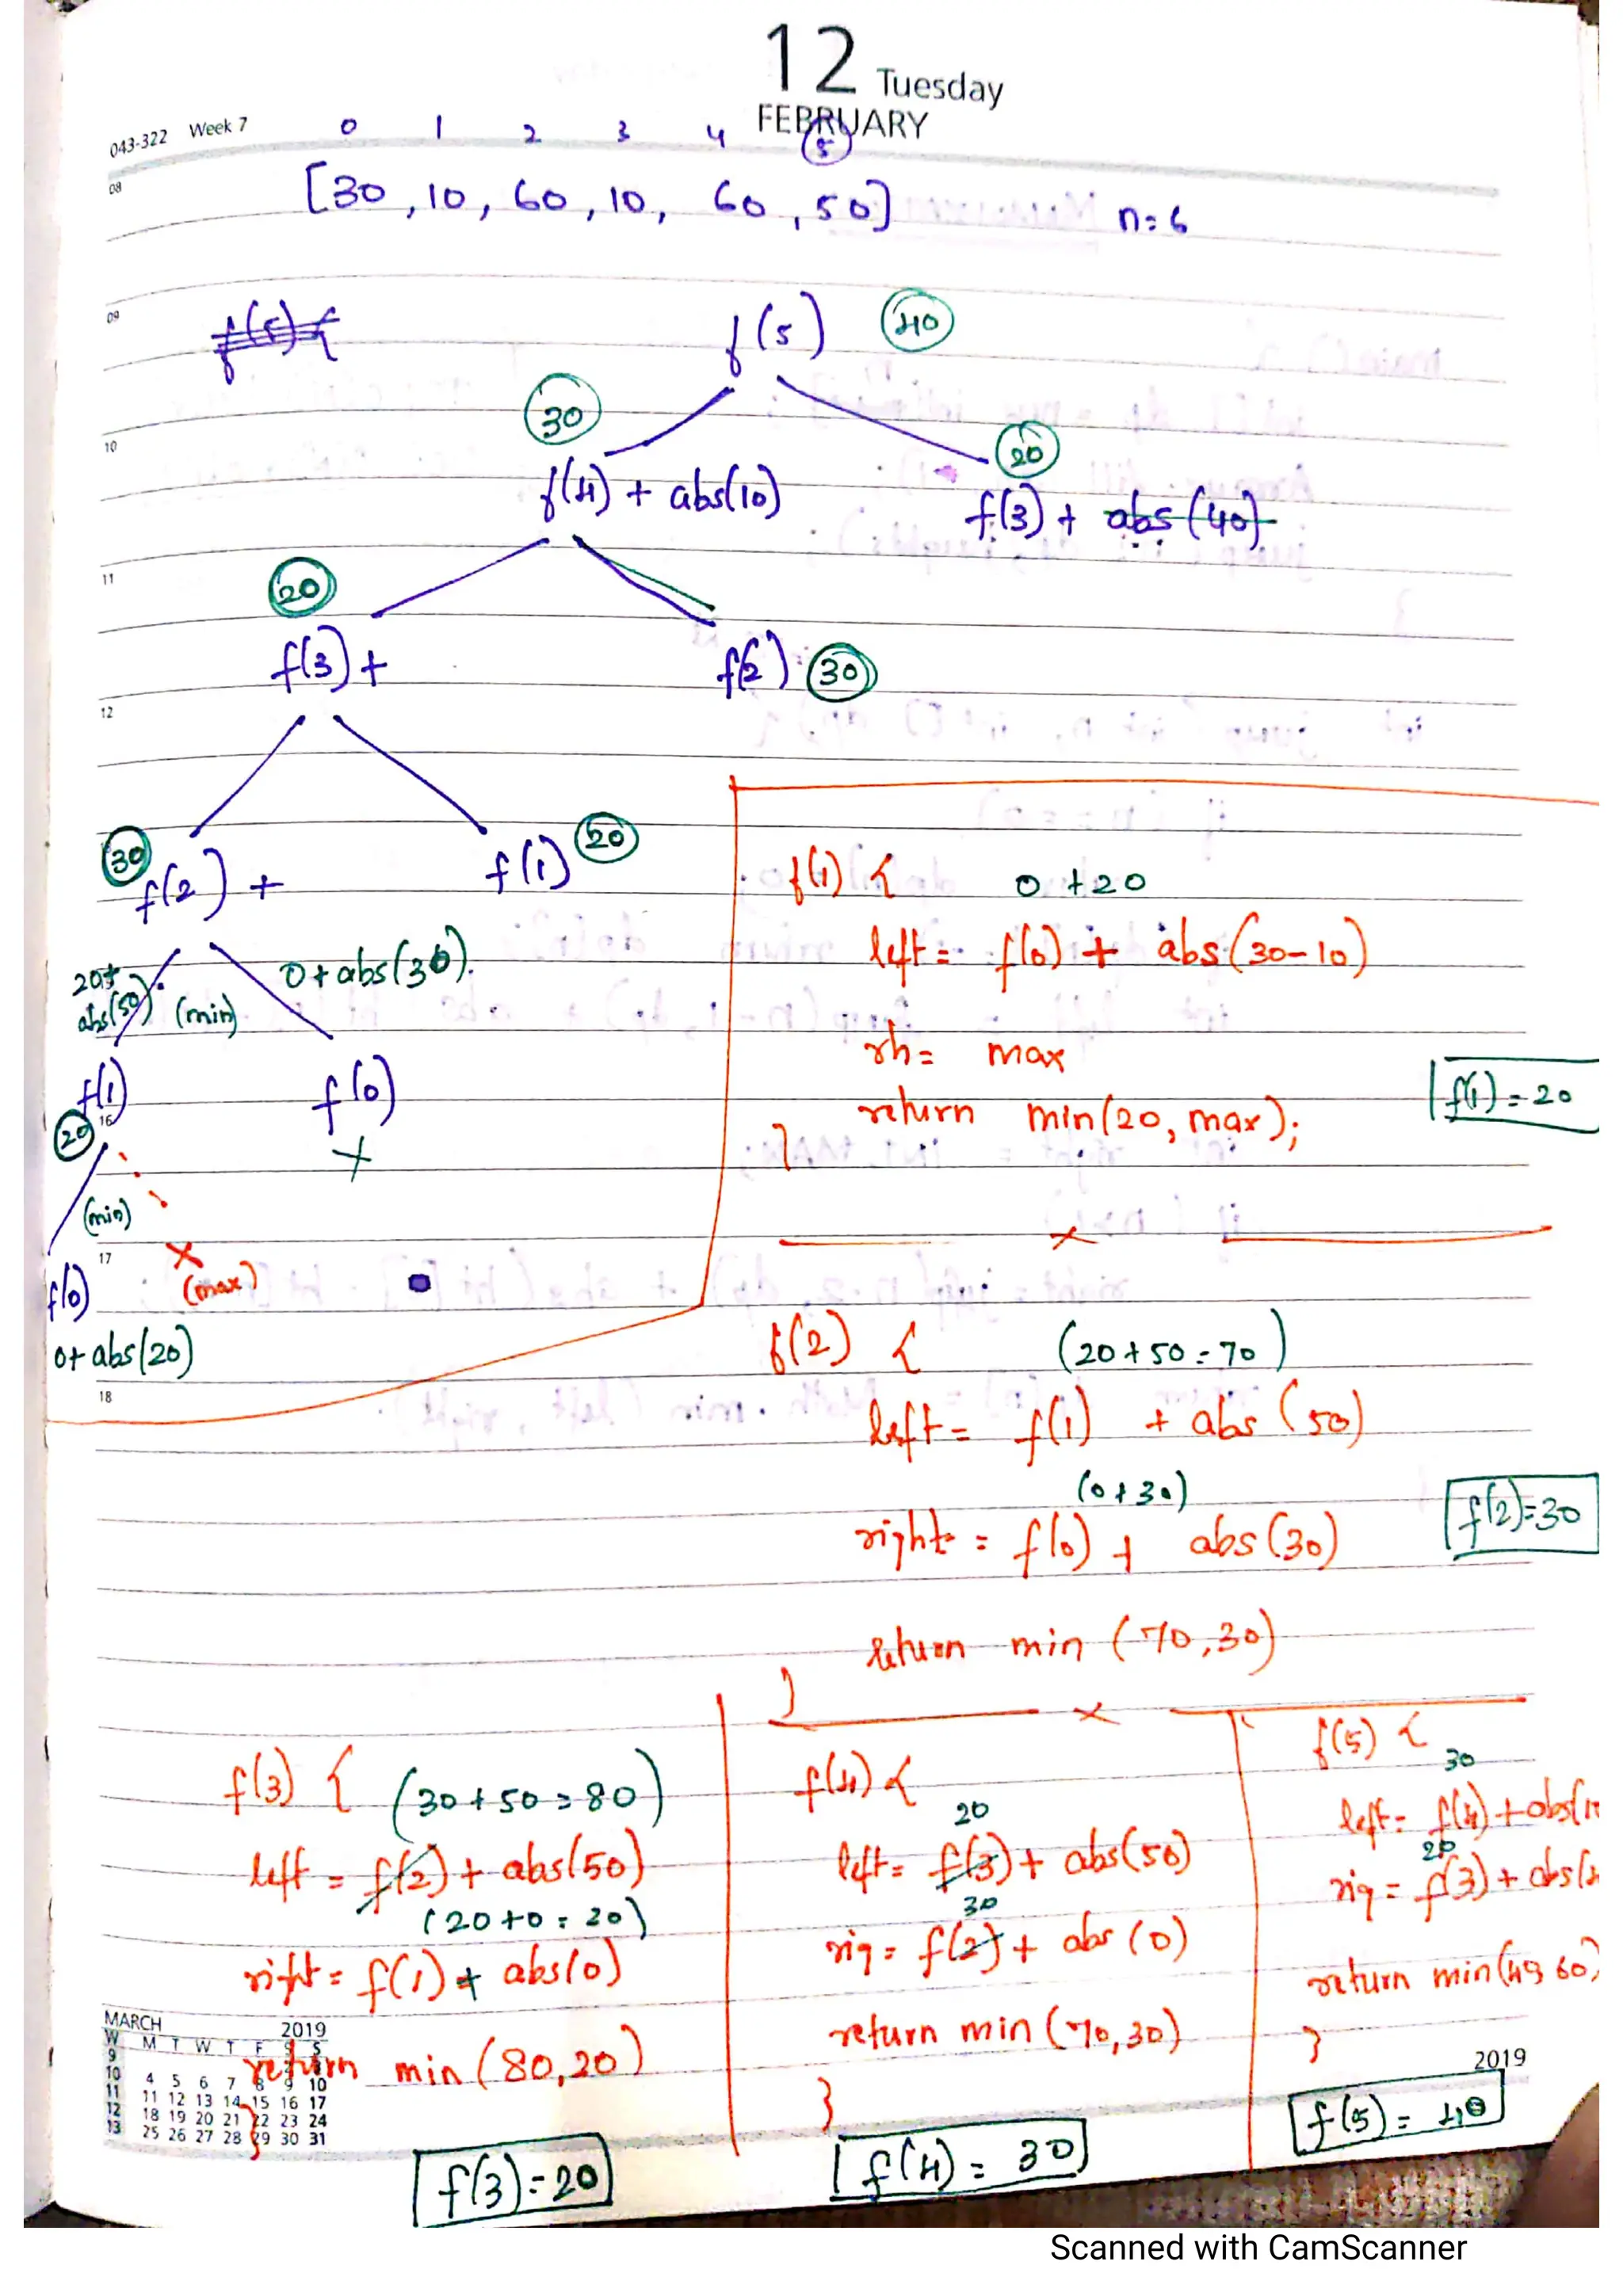 12 Tuesday
FEBRUARY
043-322 Week 7
0 1 2 3 4 5
08
[30, 10, 60, 10, 60, 50] n=6
09
f(5){
f(5) 40
30
10
20
f(4) + abs(10)
f(3) + abs(40)
11
20
f(3)+
f(2) 30
12
30
f(2) +
f(1) 20
20+
abs(50)
(min)
0+abs(30).
f(1)
f(0)
16
20
x
(min)
17
x
(max)
f(0)
0+abs(20)
18
f(1) {
0 +20
left = f(0) + abs(30-10)
rh = max
return min(20, max);
}
f(1) = 20
x
f(2) {
(20+50=70)
left = f(1) + abs(50)
(0+30)
right = f(0) + abs(30)
f(2)=30
return min (70,30)
}
x
f(3) {
(30+50=80)
left = f(2) + abs(50)
(20+0=20)
right = f(1) + abs(0)
return min (80,20)
}
f(3)=20
f(4) {
20
left = f(3) + abs(50)
30
rig = f(2) + abs(0)
return min (70,30)
}
f(4) = 30
f(5) {
30
left = f(4) + abs(1
20
rig = f(3) + abs(
return min( 60)
}
f(5) = 40
MARCH 2019
W M T W T F S S
9
10 4 5 6 7 8 9 10
11 11 12 13 14 15 16 17
12 18 19 20 21 22 23 24
13 25 26 27 28 29 30 31
2019
Scanned with CamScanner